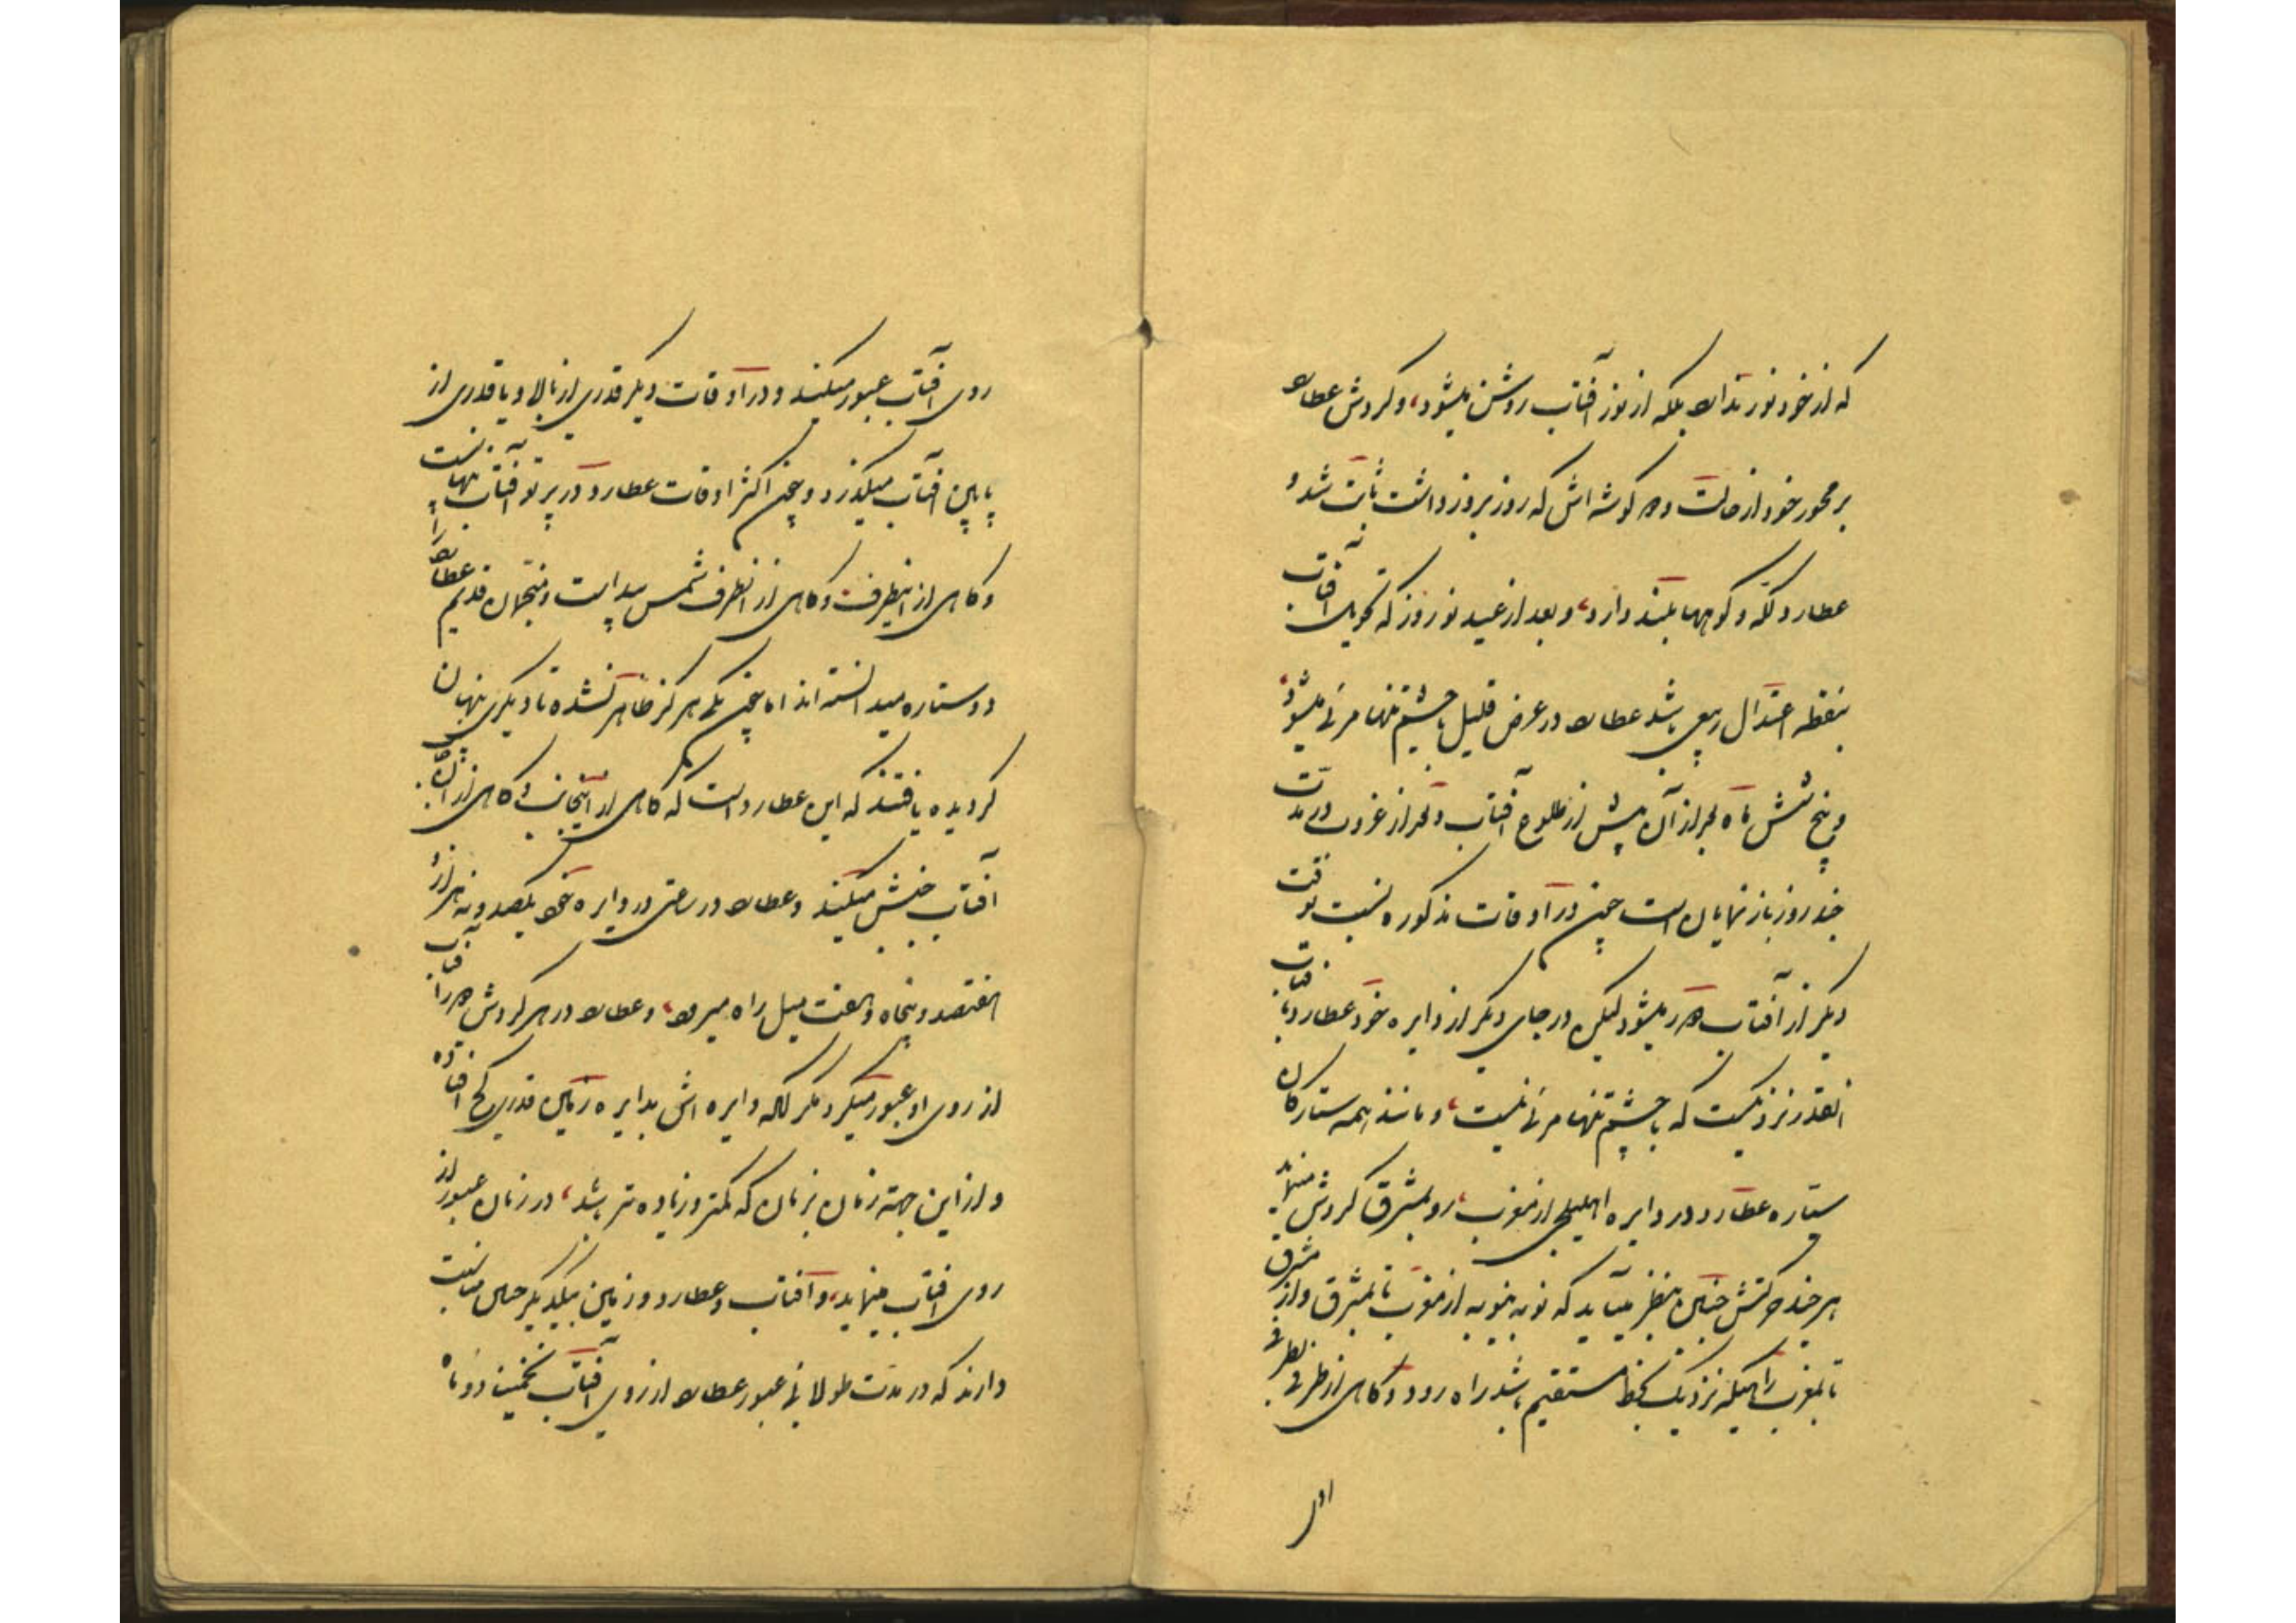 که از خود نور ندارد بلکه از نور آفتاب روشن میشود، و گردش عطارد
بر محور خود از حالت دو گوشه اش که روز بروز داشت ثابت شد و
عطارد تله و کوهها بلند دارد، و بعد از عید نوروز که تحویل آفتاب
بنقطه اعتدال ربیعی باشد عطارد در عرض قلیل با چشم تنها مرئی میشود،
و پنج شش ماه بعد از آن پیش از طلوع آفتاب و بعد از غروب در مدت
چند روز باز نمایان است چون در آن اوقات مذکوره نسبت بوقت
دیگر از آفتاب دور میشود لیکن در جای دیگر از دایره خود عطارد بآفتاب
انقدر نزدیکست که با چشم تنها مرئی نیست، و مانند همه ستارگان
ستاره عطارد در دایره اهلیلجی از مغرب، رو بمشرق گردش مینماید
هر چند حرکتش چنین بنظر میآید که نوبه بنوبه از مغرب تا بمشرق و از مشرق
تا بمغرب راهیکه نزدیک بخط مستقیم باشد راه رود و گاهی از طرفی بطرفی
اول
روی آفتاب عبور میکند و در آن اوقات دیگر قدری از بالا و یا قدری از
پایین آفتاب میگذرد و چون اکثر اوقات عطارد در پرتو آفتاب پنهانست
و گاهی از اینطرف و گاهی از انطرف شمس پیداست و منجمان قدیم عطارد را
دو ستاره میدانسته اند اما چون یکی هرگز ظاهر نشده تا دیگری پنهان
گردیده یافتند که این عطارد است که گاهی از اینجانب و گاهی از آن
آفتاب جنبش میکند و عطارد در ساعتی در دایره خود یکصد و نه هزار و
هفتصد و پنجاه و هفت میل راه میرود، و عطارد در هر گردش دور آفتاب
از روی او عبور میکرد مگر آنکه دایره اش بدایره زمین قدری کج افتاده
و از این جهته زمان بزمان که کمتر و زیاده تر باشد، در زمان عبور از
روی آفتاب مینماید، و آفتاب و عطارد و زمین بیکدیگر چنین مناسبت
دارند که در مدت طولانی عبور عطارد از روی آفتاب تخمینا دو ماه